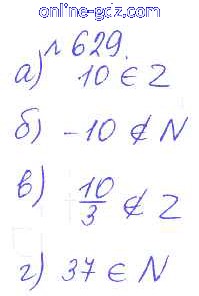 online-gdz.com
№ 629.
а) 10 ∈ Z
б) -10 ∉ N
в) 10/3 ∉ Z
г) 37 ∈ N